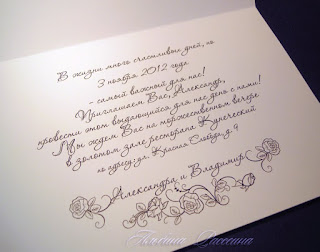 В жизни много счастливых дней, но
3 ноября 2012 года
- самый важный для нас!
Приглашаем Вас, Александр,
провести этот выдающийся для нас день с нами!
Мы ждем Вас на торжественном вечере
в золотом зале ресторана Купеческий
по адресу: ул. Красная Слобода д. 9
Александра и Владимир
Татьяна Рассказа